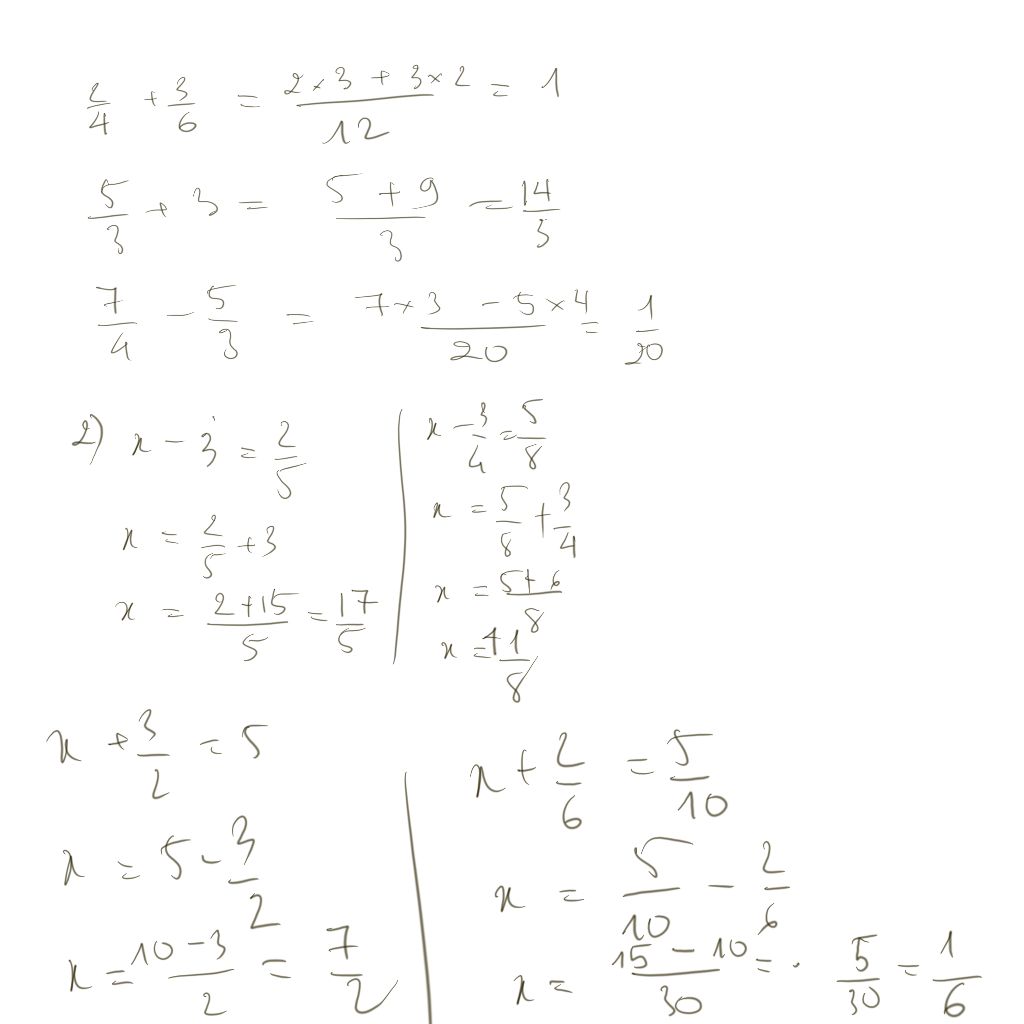 2/4 + 3/6 = (2×3 + 3×2)/12 = 1
5/3 + 3 = (5 + 9)/3 = 14/3
7/4 − 5/3 = (7×3 − 5×4)/20 = 1/20
2) x − 3 = 2/5
x = 2/5 + 3
x = (2 + 15)/5 = 17/5
x − 3/4 = 5/8
x = 5/8 + 3/4
x = (5 + 6)/8
x = 11/8
x + 3/2 = 5
x = 5 − 3/2
x = (10 − 3)/2 = 7/2
x + 2/6 = 5/10
x = 5/10 − 2/6
x = (15 − 10)/30 = . 5/30 = 1/6